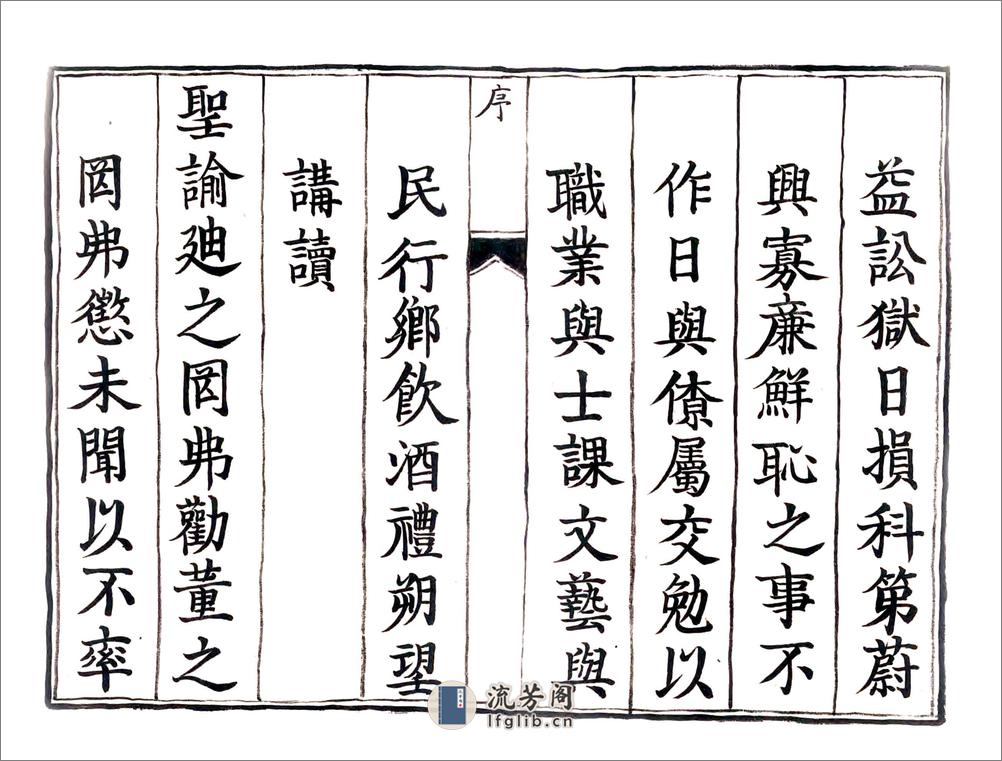 益訟獄日損科第蔚
興寡廉鮮恥之事不
作日與僚屬交勉以
職業與士課文藝與
序
民行鄉飲酒禮朔望
講讀
聖諭廸之罔弗勸董之
罔弗懲未聞以不率
流芳阁
lfglib.cn